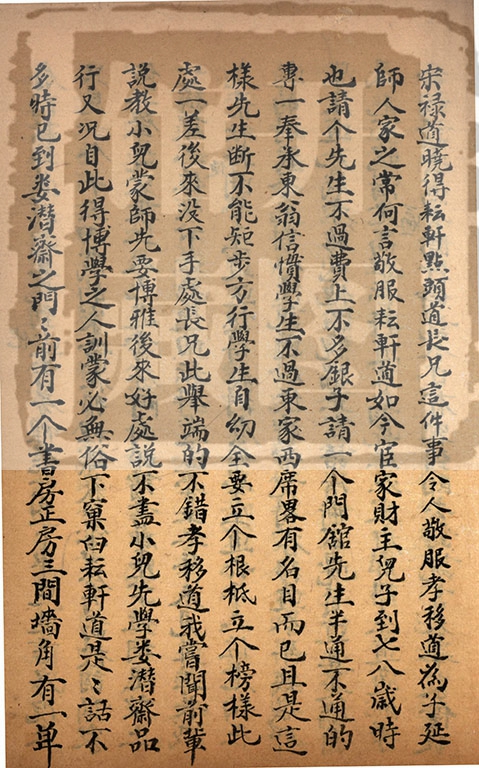 宋禄道曉得耘軒點頭道長兄這件事令人敬服孝移道為子延
師人家之常何言敬服耘軒道如今宦家財主兒子到七八歲時
也請个先生不過費上不多銀子請一个門館先生半通不通的
專一奉承東翁信慣學生不過東家西席畧有名目而已且是這
樣先生断不能矩步方行學生自幼全要立个根柢立个榜樣此
處一差後來没下手處長兄此舉端的不錯孝移道我嘗聞前輩
說教小兒蒙師先要博雅後來好處說不盡小兒先學娄潛齋品
行又况自此得博學之人訓蒙必無俗下窠臼耘軒道是〻話不
多時已到娄潛齋之門〻前有一个書房正房三間墻角有一单